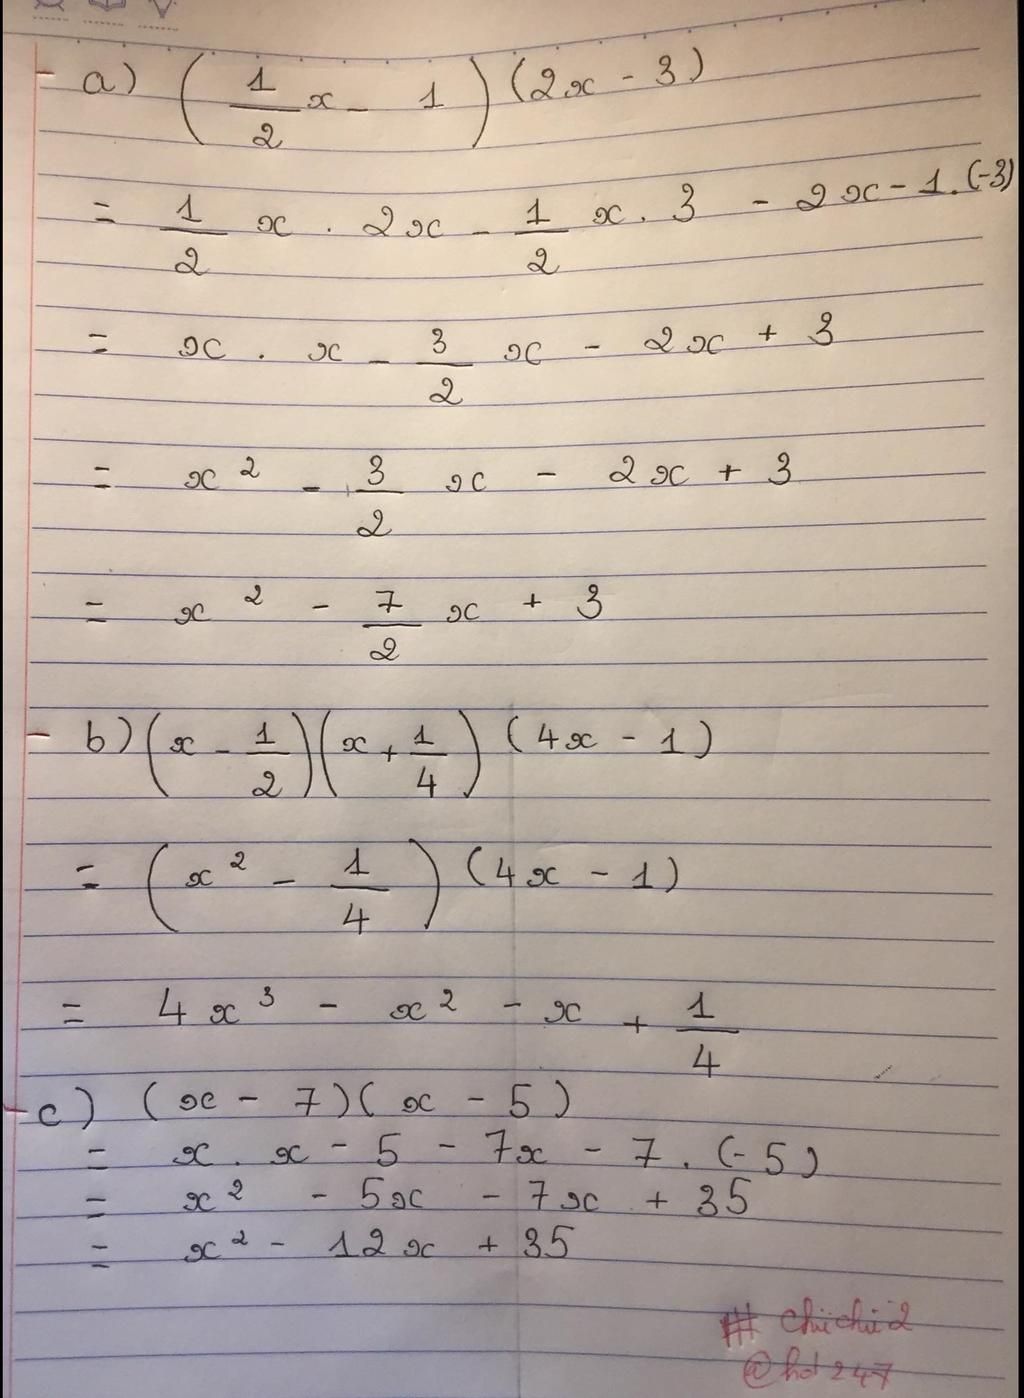 - a) (1/2 x - 1) (2x - 3)
= 1/2 x . 2x - 1/2 x . 3 - 2x - 1.(-3)
= x . x - 3/2 x - 2x + 3
= x² - 3/2 x - 2x + 3
= x² - 7/2 x + 3
- b) (x - 1/2)(x + 1/4) (4x - 1)
= (x² - 1/4) (4x - 1)
= 4x³ - x² - x + 1/4
- c) (x - 7)(x - 5)
= x . x - 5 - 7x - 7 . (-5)
= x² - 5x - 7x + 35
= x² - 12x + 35
# chichi2
@hd247